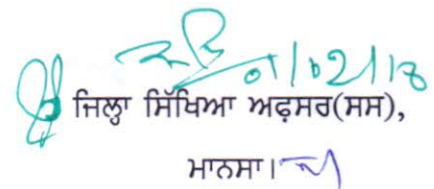 01/02/18
ਜਿਲ੍ਹਾ ਸਿੱਖਿਆ ਅਫ਼ਸਰ(ਸਸ),
ਮਾਨਸਾ।